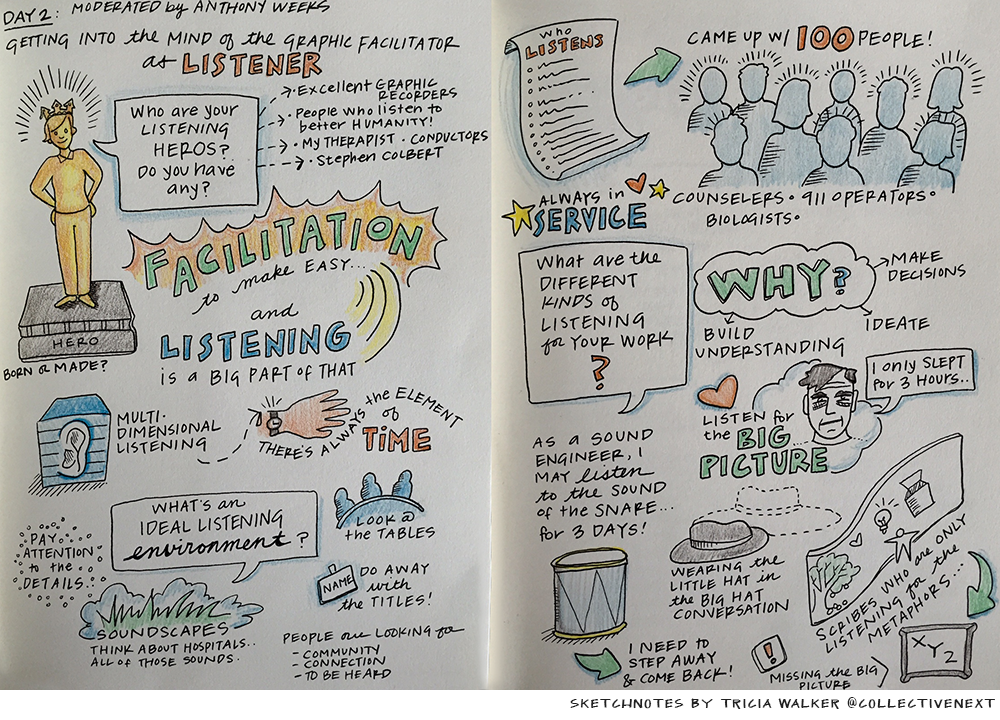 DAY 2: MODERATED by ANTHONY WEEKS
GETTING INTO the MIND of the GRAPHIC FACILITATOR
as LISTENER
Who are your
LISTENING
HEROS?
Do you have
any?
• Excellent GRAPHIC
RECORDERS
• People who listen to
better HUMANITY!
• MY THERAPIST • CONDUCTORS
• Stephen COLBERT
FACILITATION
to make EASY...
and
LISTENING
is a BIG PART OF THAT
HERO
BORN or MADE?
MULTI-
DIMENSIONAL
LISTENING
THERE'S ALWAYS the ELEMENT
of
TIME
WHAT'S an
IDEAL LISTENING
environment?
LOOK @
the TABLES
PAY
ATTENTION
to the
DETAILS..
NAME
DO AWAY
with
the TITLES!
SOUNDSCAPES
THINK ABOUT HOSPITALS..
ALL OF THOSE SOUNDS..
PEOPLE are LOOKING for
- COMMUNITY
- CONNECTION
- TO BE HEARD
WHO
LISTENS
CAME UP W/ 100 PEOPLE!
ALWAYS in
SERVICE
COUNSELERS • 911 OPERATORS •
BIOLOGISTS •
What are the
DIFFERENT
KINDS of
LISTENING
for YOUR WORK
?
WHY?
MAKE
DECISIONS
IDEATE
BUILD
UNDERSTANDING
I only SLEPT
for 3 HOURS..
LISTEN for
the BIG
PICTURE
AS A SOUND
ENGINEER, I
MAY listen
to the SOUND
of the SNARE...
for 3 DAYS!
WEARING the
LITTLE HAT in
the BIG HAT
CONVERSATION
SCRIBES WHO are ONLY
LISTENING for the
METAPHORS...
I NEED TO
STEP AWAY
& COME BACK!
!
MISSING the BIG
PICTURE
XYZ
SKETCHNOTES BY TRICIA WALKER @COLLECTIVENEXT